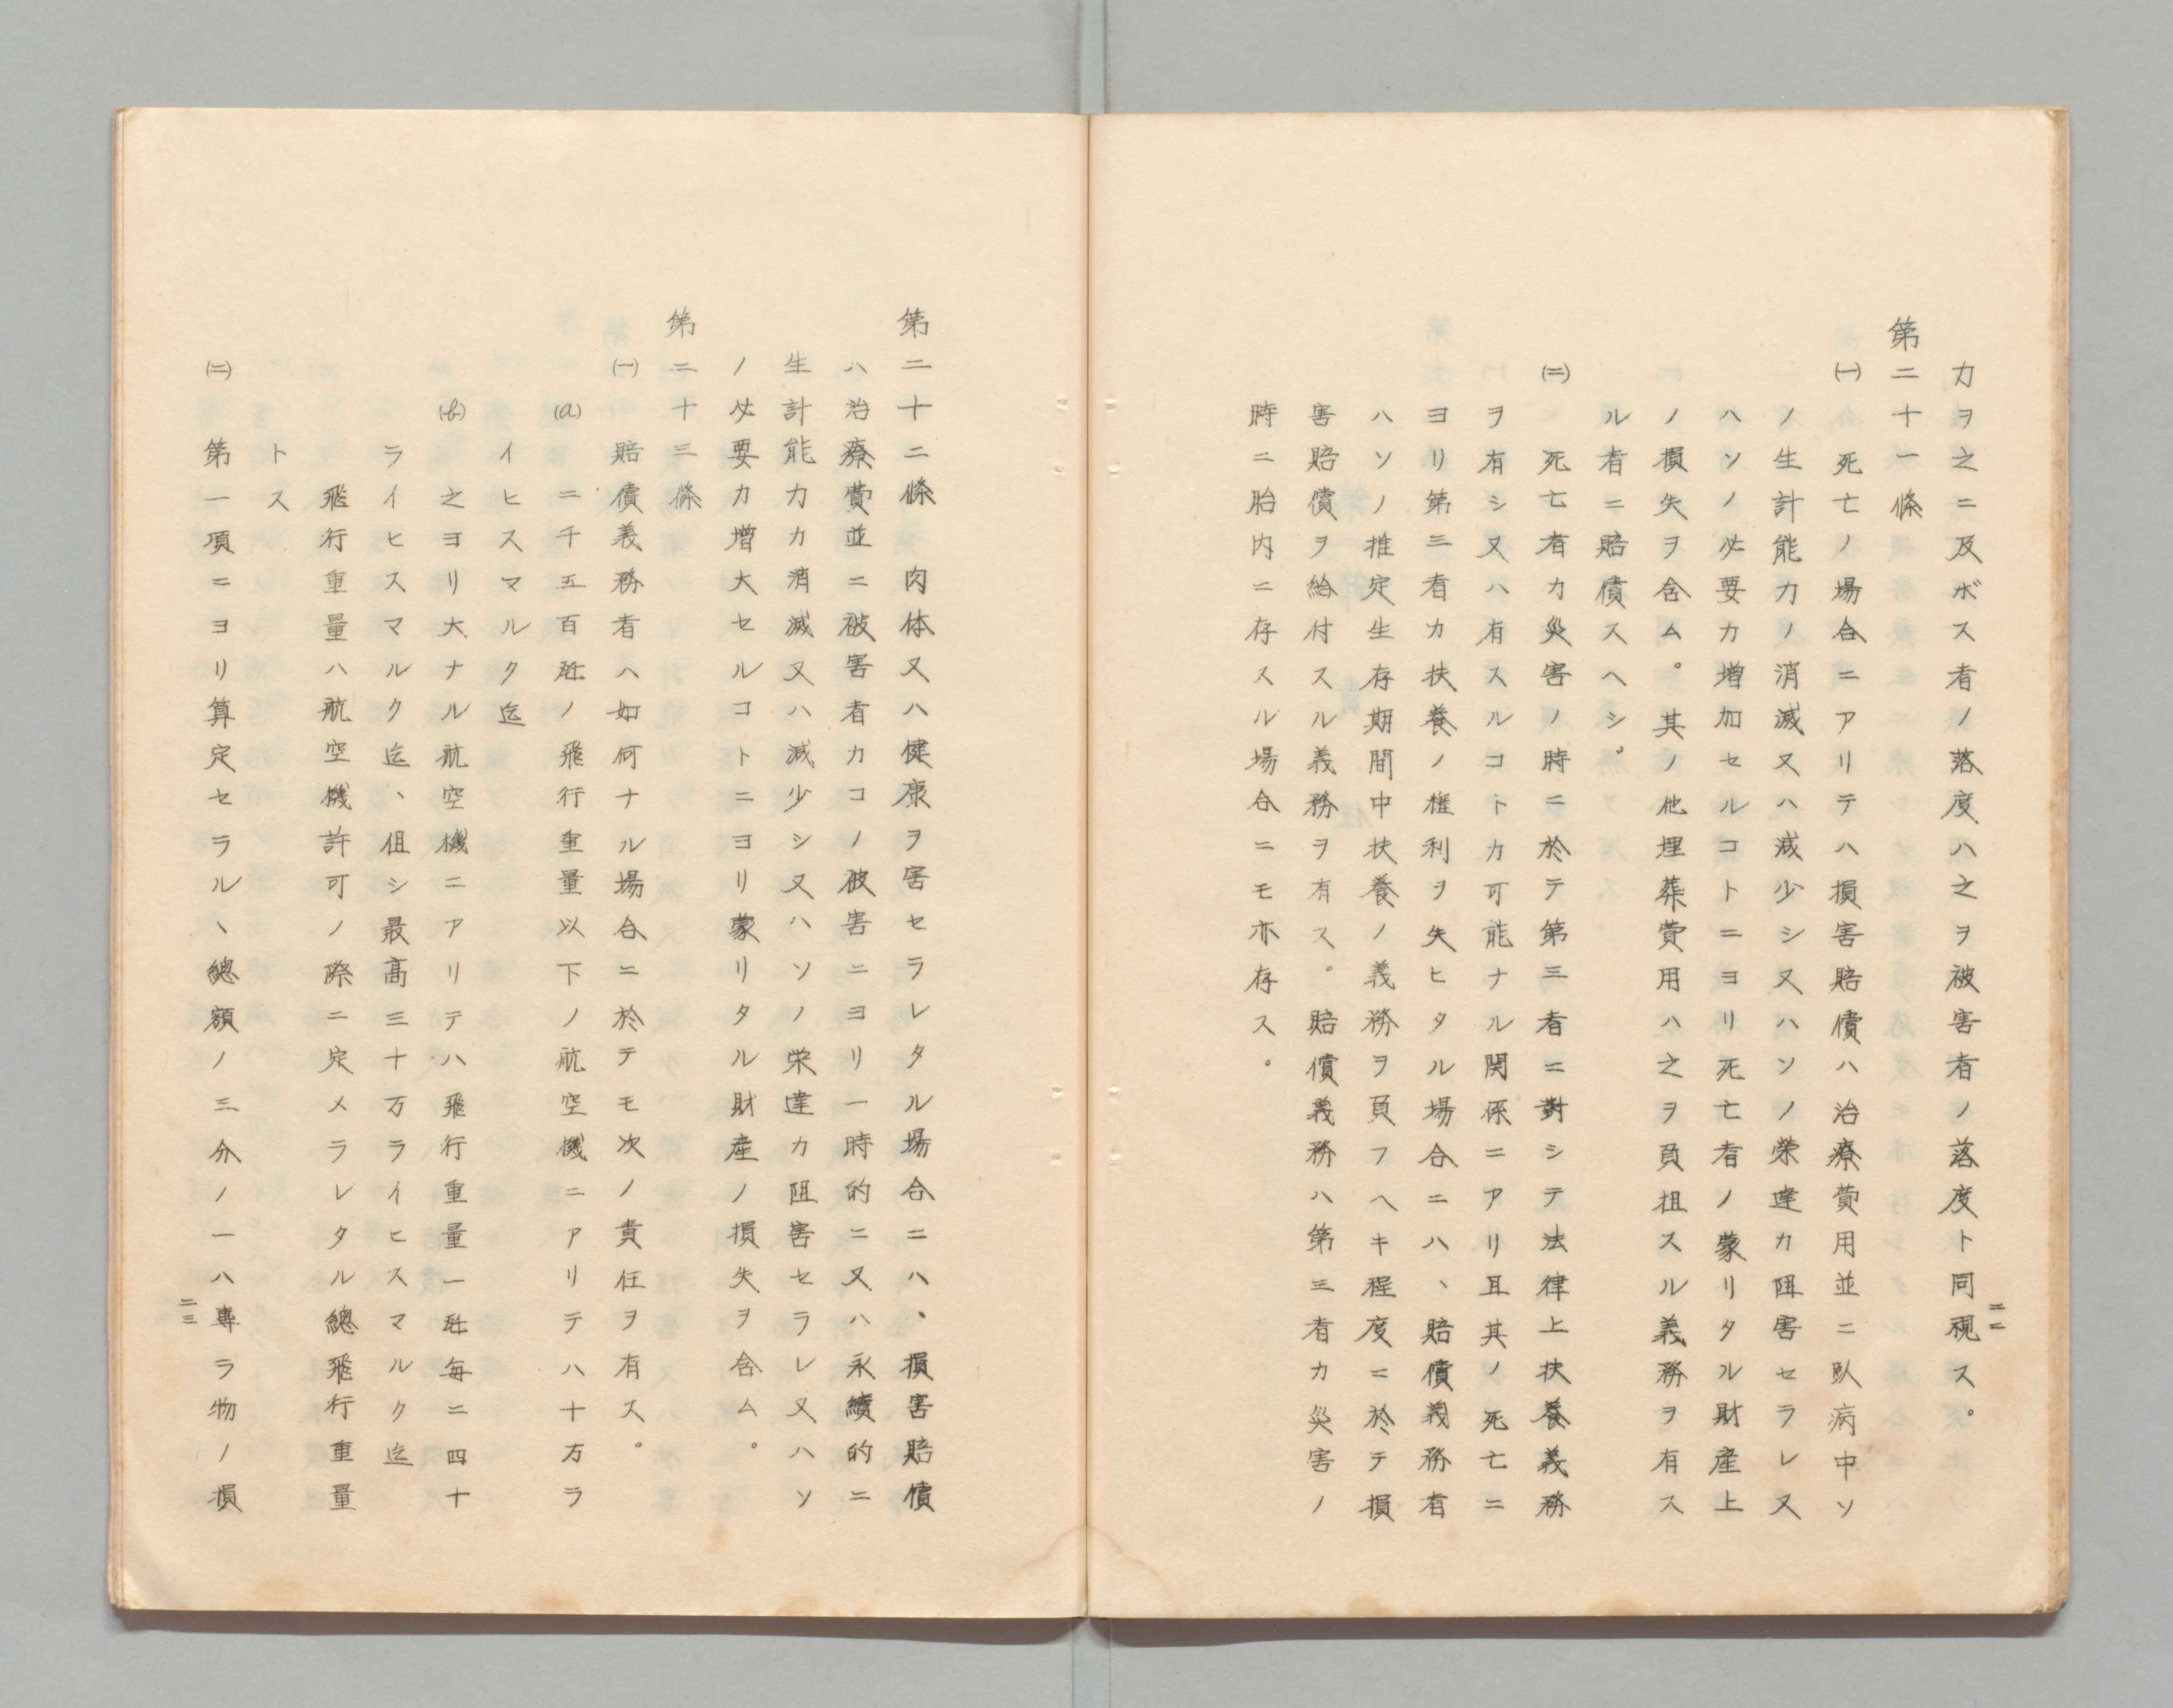 力ヲ之ニ及ボス者ノ落度ハ之ヲ被害者ノ落度ト同視ス。
第二十一條
(一) 死亡ノ場合ニアリテハ損害賠償ハ治療費用並ニ臥病中ソ
ノ生計能力ノ消滅又ハ減少シ又ハソノ榮達カ阻害セラレ又
ハソノ必要カ増加セルコトニヨリ死亡者ノ蒙リタル財産上
ノ損失ヲ含ム。其ノ他埋葬費用ハ之ヲ負担スル義務ヲ有ス
ル者ニ賠償スヘシ。
(二) 死亡者カ災害ノ時ニ於テ第三者ニ對シテ法律上扶養義務
ヲ有シ又ハ有スルコトカ可能ナル関係ニアリ且其ノ死亡ニ
ヨリ第三者カ扶養ノ権利ヲ失ヒタル場合ニハ、賠償義務者
ハソノ推定生存期間中扶養ノ義務ヲ負フヘキ程度ニ於テ損
害賠償ヲ給付スル義務ヲ有ス。賠償義務ハ第三者カ災害ノ
時ニ胎内ニ存スル場合ニモ亦存ス。
二二
第二十二條 肉体又ハ健康ヲ害セラレタル場合ニハ、損害賠償
ハ治療費並ニ被害者カコノ被害ニヨリ一時的ニ又ハ永續的ニ
生計能力カ消滅又ハ減少シ又ハソノ栄達カ阻害セラレ又ハソ
ノ必要カ増大セルコトニヨリ蒙リタル財産ノ損失ヲ含ム。
第二十三條
(一) 賠償義務者ハ如何ナル場合ニ於テモ次ノ責任ヲ有ス。
(a) 二千五百瓩ノ飛行重量以下ノ航空機ニアリテハ十万ラ
イヒスマルク迄
(b) 之ヨリ大ナル航空機ニアリテハ飛行重量一瓩毎ニ四十
ライヒスマルク迄、但シ最高三十万ライヒスマルク迄
飛行重量ハ航空機許可ノ際ニ定メラレタル總飛行重量
トス
(二) 第一項ニヨリ算定セラル、總額ノ三分ノ一ハ專ラ物ノ損
二三